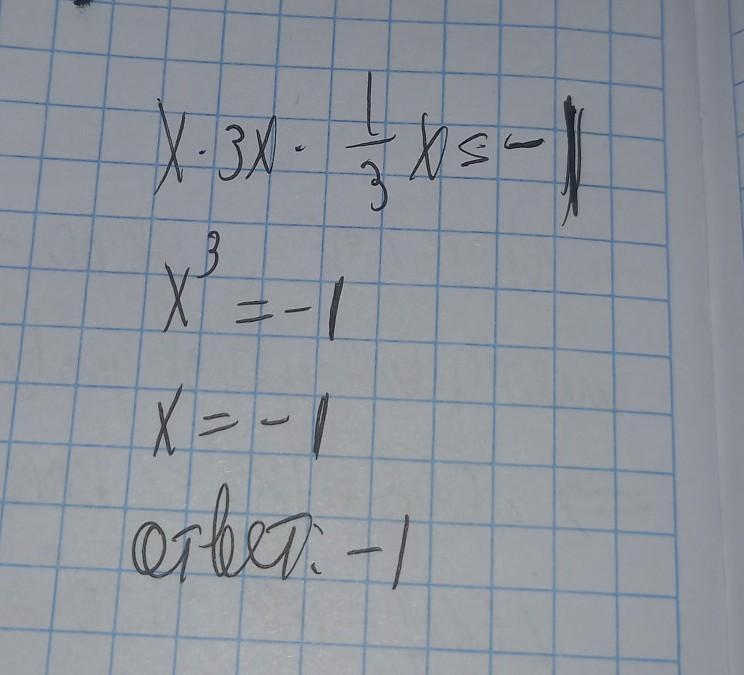 x · 3x · 1/3 x = -1
x³ = -1
x = -1
ответ: -1